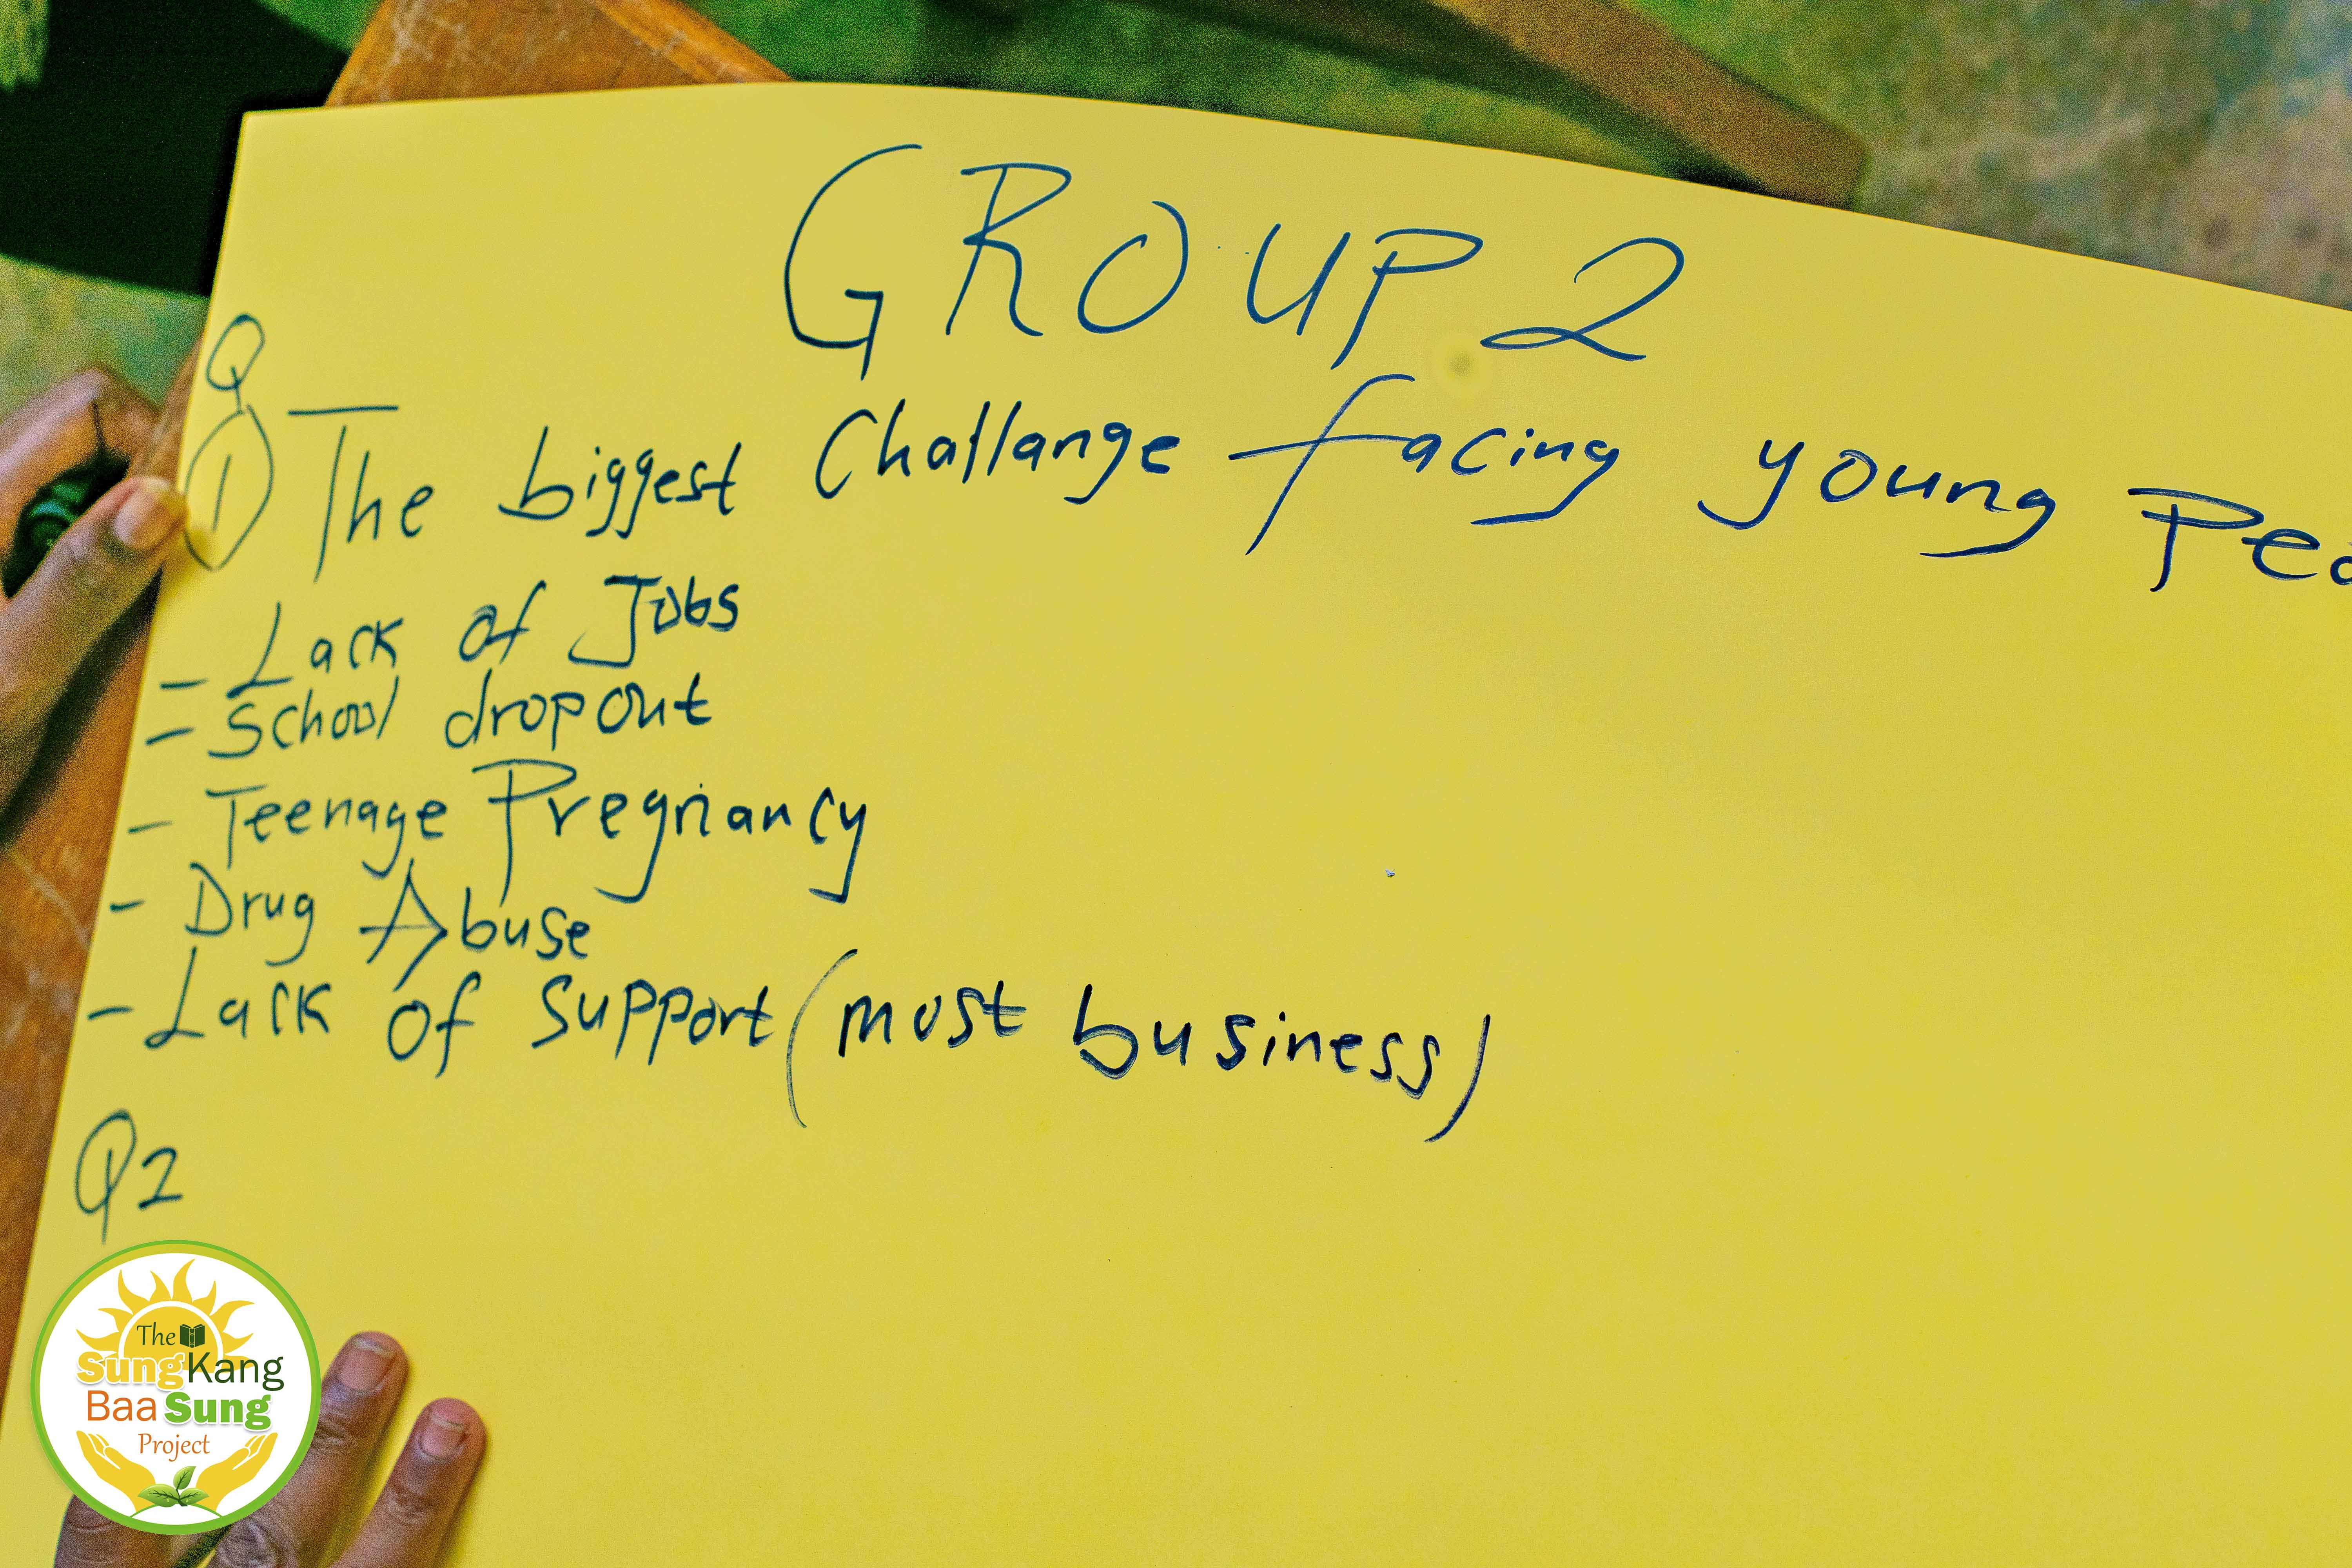 GROUP 2
Q
1 The biggest Challange facing young Peo
- Lack of Jobs
- School dropout
- Teenage Pregnancy
- Drug Abuse
- Lack of Support (most business)
Q2
The
SungKang
Baa Sung
Project